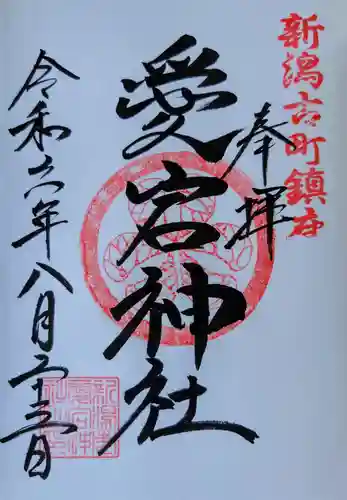 新潟古町鎮座
奉拝
愛宕神社
令和六年八月二十三日